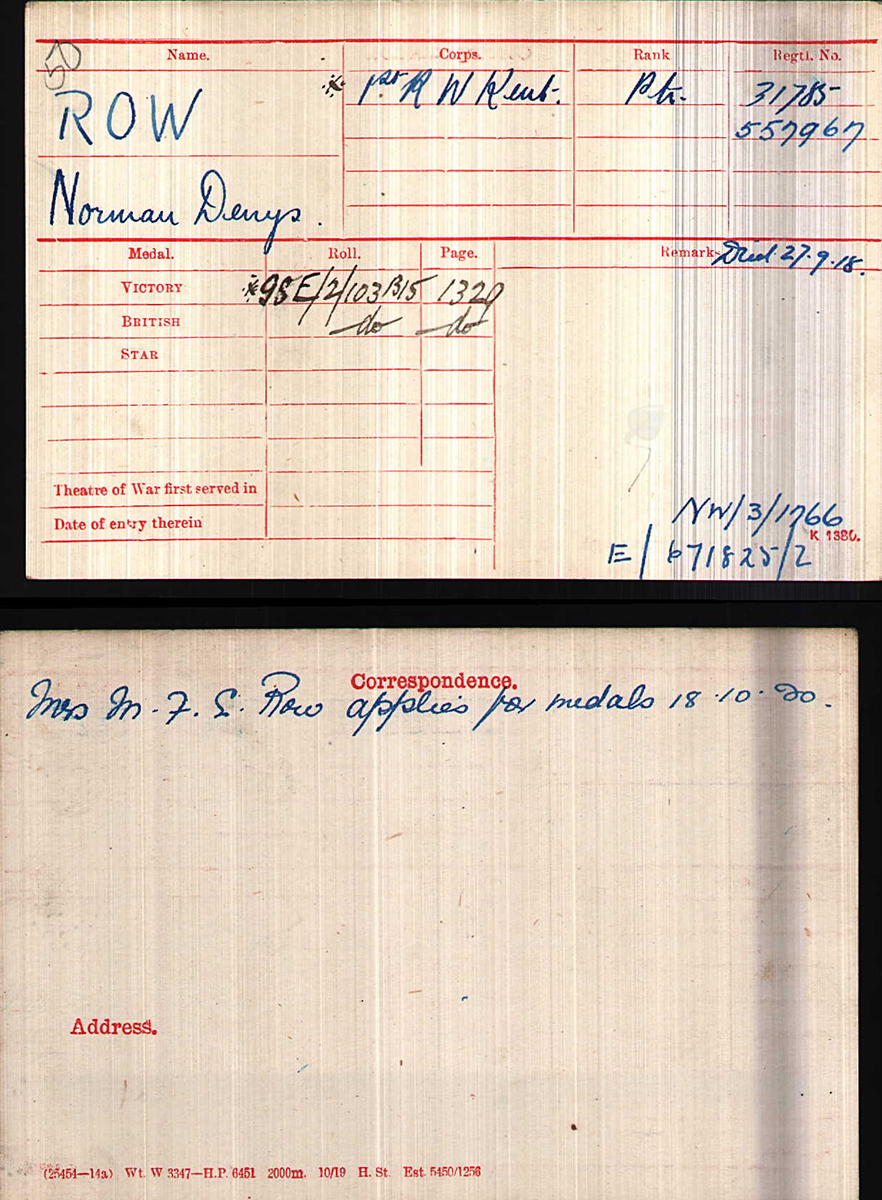 50
Name. Corps. Rank Regtl. No.
ROW * 1st R W Kent. Pte. 31785
557967
Norman Denys.
Medal. Roll. Page. Remarks Died 27.9.18.
VICTORY *98E/2/103B15 1329
BRITISH do do
STAR
Theatre of War first served in
Date of entry therein
NW/3/1766
K 1380.
E/671825/2
Correspondence.
Mrs M. F. E. Row applies for medals 18.10.20.
Address.
(25454—14a) Wt. W 3347—H.P. 6451 2000m. 10/19 H. St. Est. 5450/1256